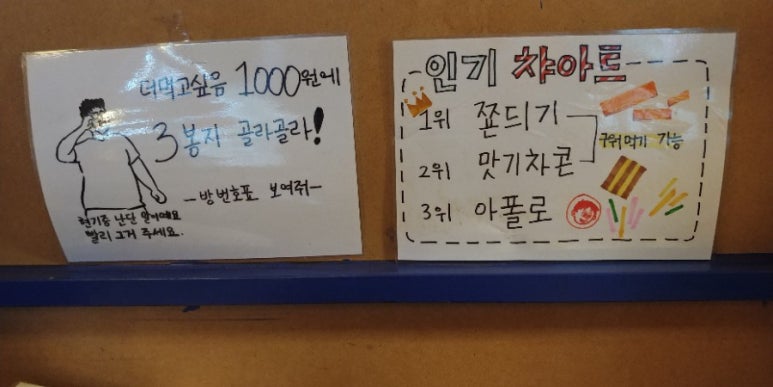 더먹고싶음 1000원에
3봉지 골라골라!
-방번호표 보여줘-
현기증 난단 말이예요
빨리 그거 주세요.
인기 챠아트
1위 쫀드기
2위 맛기차콘
구워먹기 가능
3위 아폴로